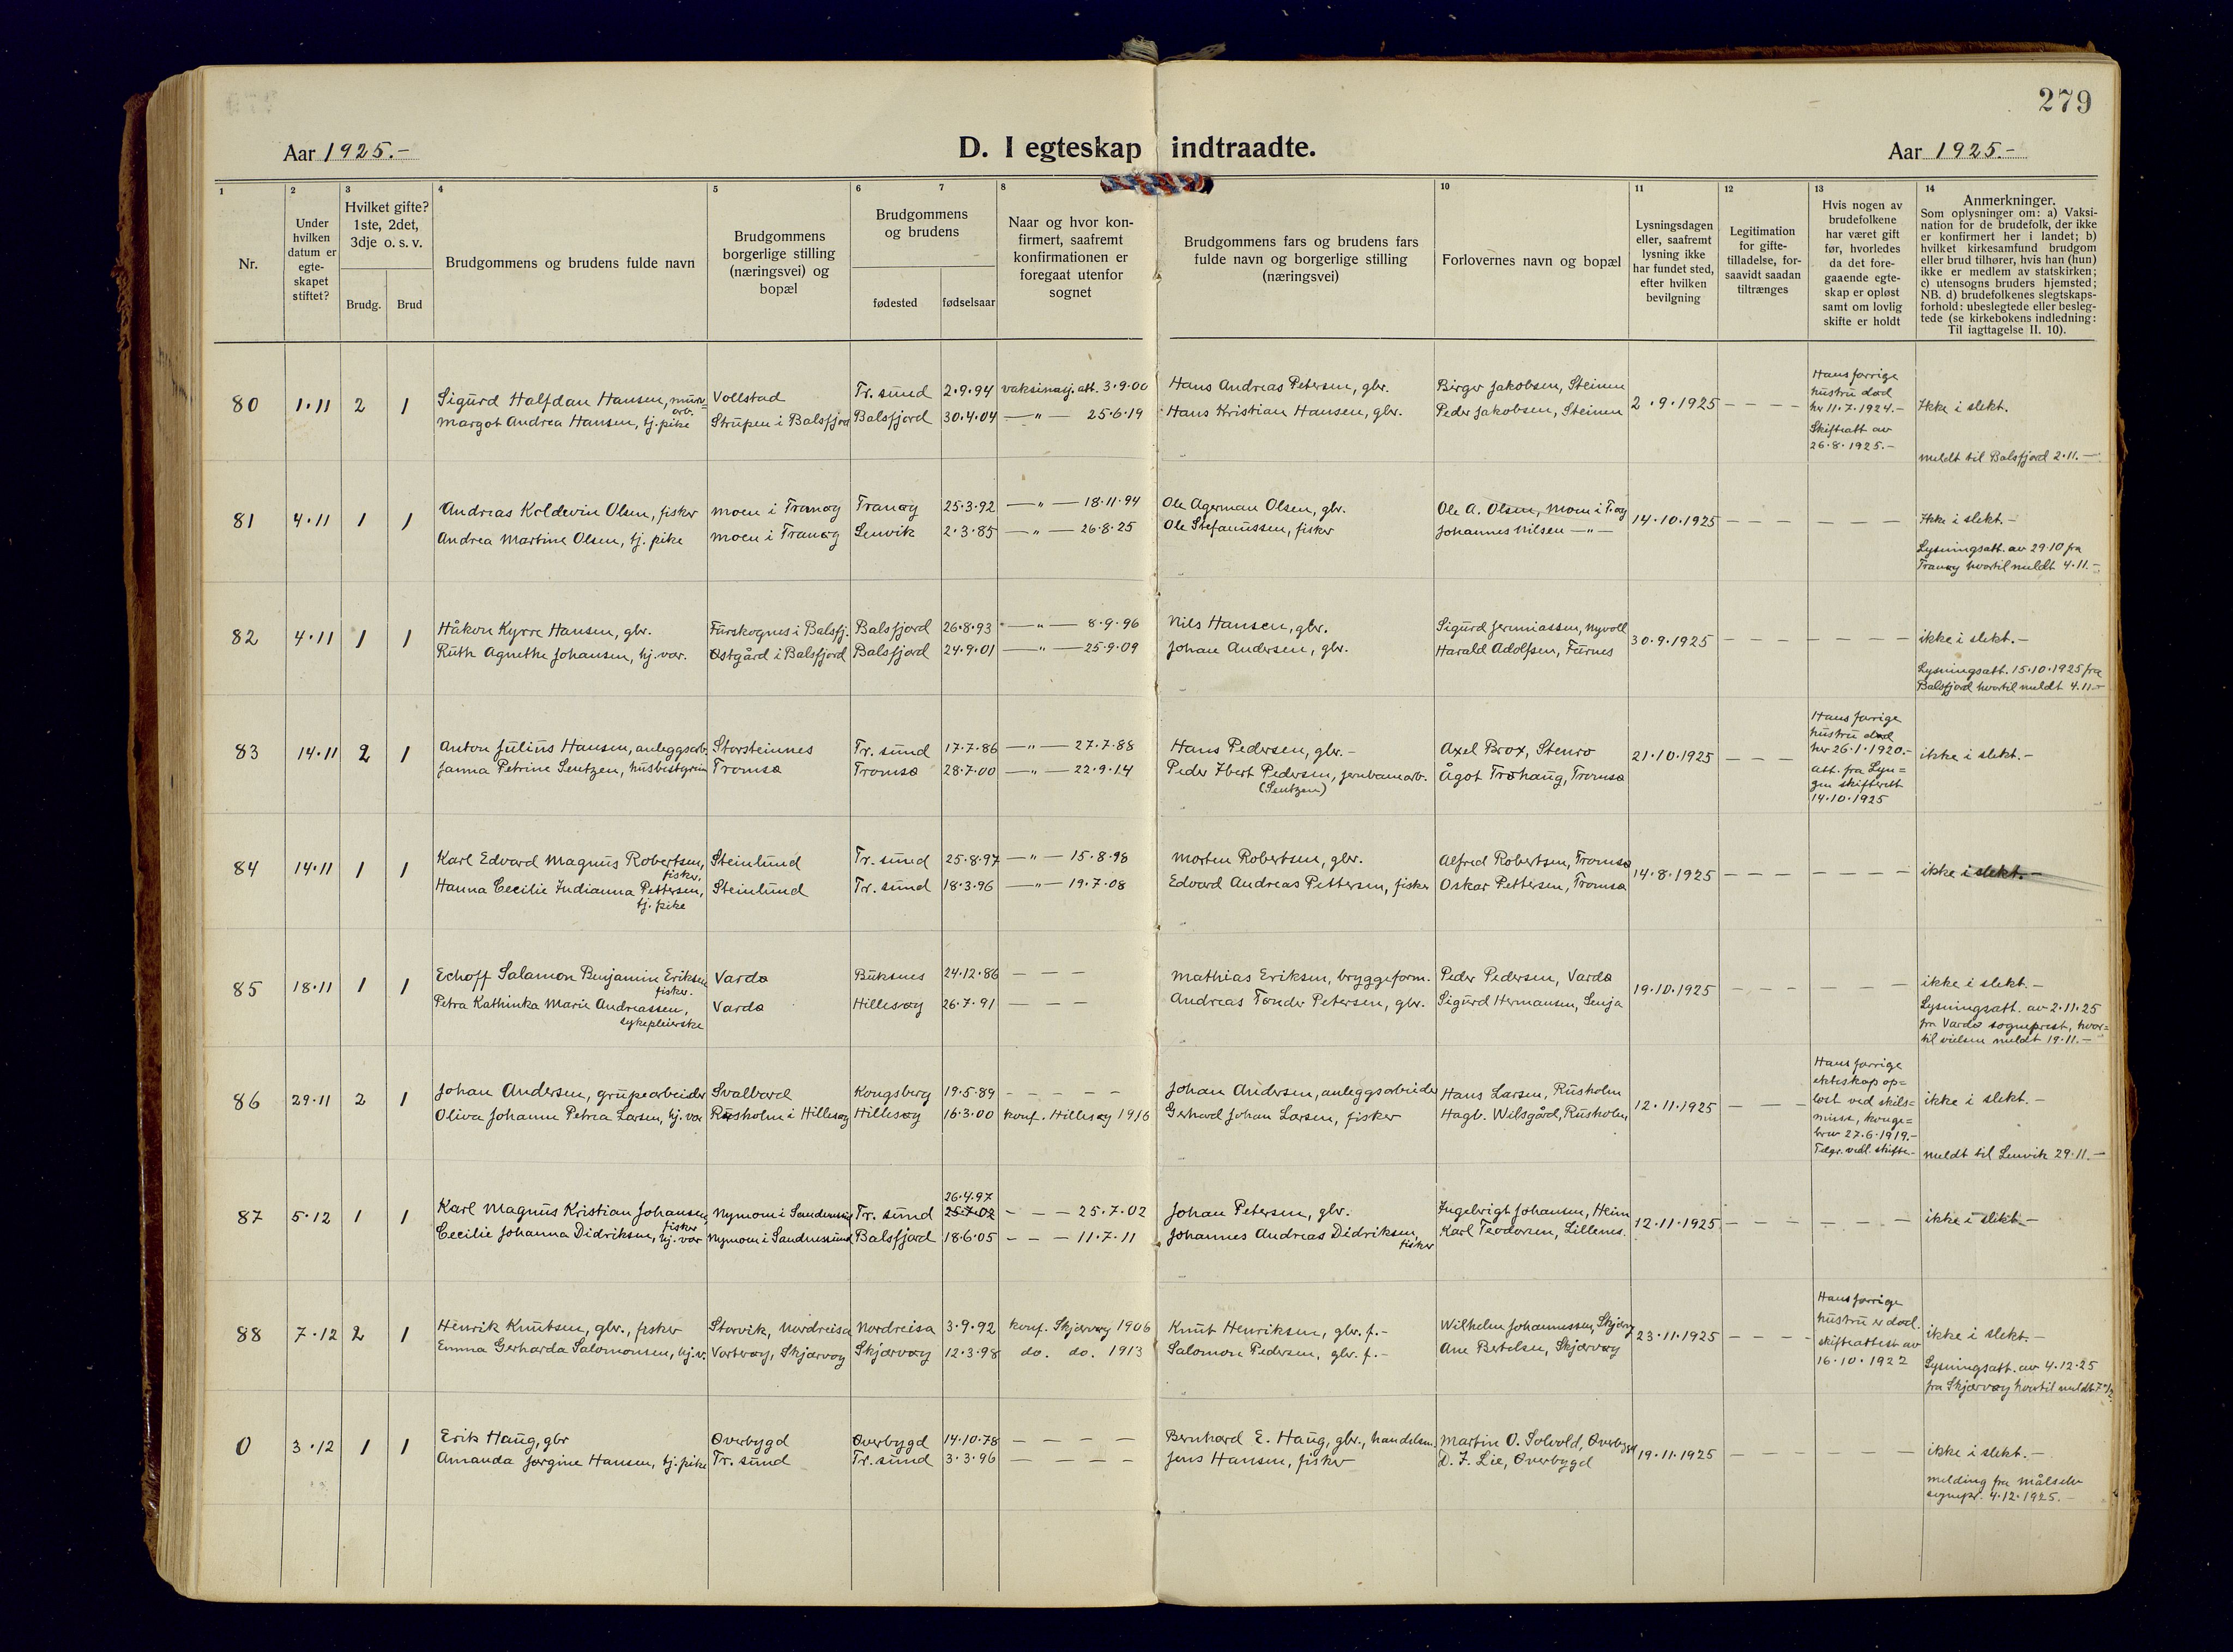 279
Aar 1925.-
D. I egteskap indtraadte.
Aar 1925.-
1 2 3 4 5 6 7 8 10 11 12 13 14
Nr.
Under hvilken datum er egte-skapet stiftet?
Hvilket gifte? 1ste, 2det, 3dje o. s. v.
Brudg. Brud
Brudgommens og brudens fulde navn
Brudgommens borgerlige stilling (næringsvei) og bopæl
Brudgommens og brudens
fødested fødselsaar
Naar og hvor kon-firmert, saafremt konfirmationen er foregaat utenfor sognet
Brudgommens fars og brudens fars fulde navn og borgerlige stilling (næringsvei)
Forlovernes navn og bopæl
Lysningsdagen eller, saafremt lysning ikke har fundet sted, efter hvilken bevilgning
Legitimation for gifte-tilladelse, for-saavidt saadan tiltrænges
Hvis nogen av brudefolkene har været gift før, hvorledes da det fore-gaaende egte-skap er opløst samt om lovlig skifte er holdt
Anmerkninger.
Som oplysninger om: a) Vaksi-nation for de brudefolk, der ikke er konfirmert her i landet; b) hvilket kirkesamfund brudgom eller brud tilhører, hvis han (hun) ikke er medlem av statskirken; c) utensogns bruders hjemsted; NB. d) brudefolkenes slegtskaps-forhold: ubeslegtede eller besleg-tede (se kirkebokens indledning: Til iagttagelse II. 10).
80 1.11 2 1
Sigurd Halfdan Hansen, mur=arb. Vollstad Tr. sund 2.9.94 vaksinasj. att. 3.9.00 Hans Andreas Petersen, gbr. Birger Jakobsen, Steinnes
Margot Andrea Hansen, tj. pike Strupen i Balsfjord Balsfjord 30.4.04 — " — 25.6.19 Hans Kristian Hansen, gbr. Peder Jakobsen, Steinnes
2.9.1925 - - - -
Hans forrige hustru død her 11.7.1924.- Skifteatt av 26.8.1925.-
Ikke i slekt.
meldt til Balsfjord 2.11.-
81 4.11 1 1
Andreas Koldevin Olsen, fisker Moen i Tranøy Tranøy 25.3.92 — " — 18.11.94 Ole Agerman Olsen, gbr. Ole A. Olsen, Moen i T.øy
Andrea Martine Olsen, tj. pike Moen i Tranøy Lenvik 2.3.85 — " — 26.8.25 Ole Stefanussen, fisker Johannes Nilsen — " —
14.10.1925 - - - - - - - -
Ikke i slekt.-
Lysningsatt. av 29.10 fra
Tranøy hvortil meldt 4.11.-
82 4.11 1 1
Håkon Kyrre Hansen, gbr. Furskognes i Balsfj. Balsfjord 26.8.93 — " — 8.9.96 Nils Hansen, gbr. Sigurd Jeremiassen, Nyvoll
Ruth Agnethe Johansen, hj. vær. Østgård i Balsfjord Balsfjord 24.9.01 — " — 25.9.09 Johan Andersen, gbr. Harald Adolfsen, Furnes
30.9.1925 - - - - - - - -
ikke i slekt.-
Lysningsatt. 15.10.1925 fra
Balsfjord hvortil meldt 4.11.-
83 14.11 2 1
Anton Julius Hansen, anleggsarb. Storsteinnes Tr. sund 17.7.86 — " — 27.7.88 Hans Pedersen, gbr.- Axel Brox, Stenro
Janna Petrine Lentzen, husbestyrerin Tromsø Tromsø 28.7.00 — " — 22.9.14 Peder Ibert Pedersen, jernbanearb. (Lentzen) Ågot Trøhaug, Tromsø
21.10.1925 - - -
Hans forrige hustru død her 26.1.1920.- att. fra Lyn=gen skifterett 14.10.1925
ikke i slekt.-
84 14.11 1 1
Karl Edvard Magnus Robertsen, fisker. Steinlund Tr. sund 25.8.97 — " — 15.8.98 Morten Robertsen, gbr. Alfred Robertsen, Tromsø
Hanna Cecilie Indianna Pettersen, tj. pike Steinlund Tr. sund 18.3.96 — " — 19.7.08 Edvard Andreas Pettersen, fisker Oskar Pettersen, Tromsø
14.8.1925 - - - - - - -
ikke i slekt.-
85 18.11 1 1
Echoff Salamon Benjamin Eriksen fisker. Vardø Buksnes 24.12.86 - - - Mathias Eriksen, bryggeform. Peder Pedersen, Vardø
Petra Kathinka Marie Andreassen, sykepleierske Vardø Hillesøy 26.7.91 - - - Andreas Tønder Petersen, gbr. Sigurd Hermansen, Senja
19.10.1925 - - - - - -
ikke i slekt.-
Lysningsatt. av 2.11.25
fra Vardø sogneprest, hvor=
til vielsen meldt 19.11.-
86 29.11 2 1
Johan Andersen, grupearbeider Svalbard Kongsberg 19.5.89 - - - - - Johan Andersen, anleggsarbeider Hans Larsen, Rusholm
Oliva Johanne Petrea Larsen, hj. vær Rusholm i Hillesøy Hillesøy 16.3.00 konf. Hillesøy 1916 Gerhard Johan Larsen, fisker Hagb. Wilsgård, Rusholm
12.11.1925 - - -
Hans forrige ekteskap op=løst ved skils=misse, konge=brev 27.6.1919.- Telgr. vedl. skifte-
ikke i slekt.-
meldt til Lenvik 29.11.-
87 5.12 1 1
Karl Magnus Kristian Johansen, fisker Nymoen i Sandnessund Tr. sund 26.4.97 25.7.02 - - - 25.7.02 Johan Petersen, gbr. Ingebrigt Johansen, Heim
Cecilie Johanna Didriksen, hj. vær Nymoen i Sandnessund Balsfjord 18.6.05 - - - 11.7.11 Johannes Andreas Didriksen, fisker Karl Teodorsen, Lillenes.
12.11.1925 - - - - - - -
ikke i slekt.-
88 7.12 2 1
Henrik Knutsen, gbr., fisker Storvik, Nordreisa Nordreisa 3.9.92 konf. Skjervøy 1906 Knut Henriksen, gbr. f.- Wilhelm Johannessen, Skjervøy
Emma Gerharda Salomonsen, hj.v. Vorterøy, Skjervøy Skjervøy 12.3.98 do. do. 1913 Salomon Pedersen, gbr. f.- Ane Bertelsen, Skjervøy
23.11.1925 - - - -
Hans forrige hustru er død. skifteattest av 16.10.1922
ikke i slekt.-
Lysningsatt. av 4.12.25
fra Skjervøy hvortil meldt 7/12
0 3.12 1 1
Erik Haug, gbr Øverbygd Øverbygd 14.10.78 - - - - Bernhard E. Haug, gbr., handelsm. Martin O. Solvold, Øverbygd
Amanda Jørgine Hansen, tj. pike Tr. sund Tr. sund 3.3.96 - - - - Jens Hansen, fisker D. F. Lie, Øverbygd
19.11.1925 - - - - - -
ikke i slekt.-
melding fra Målselv
sognepr. 4.12.1925.-